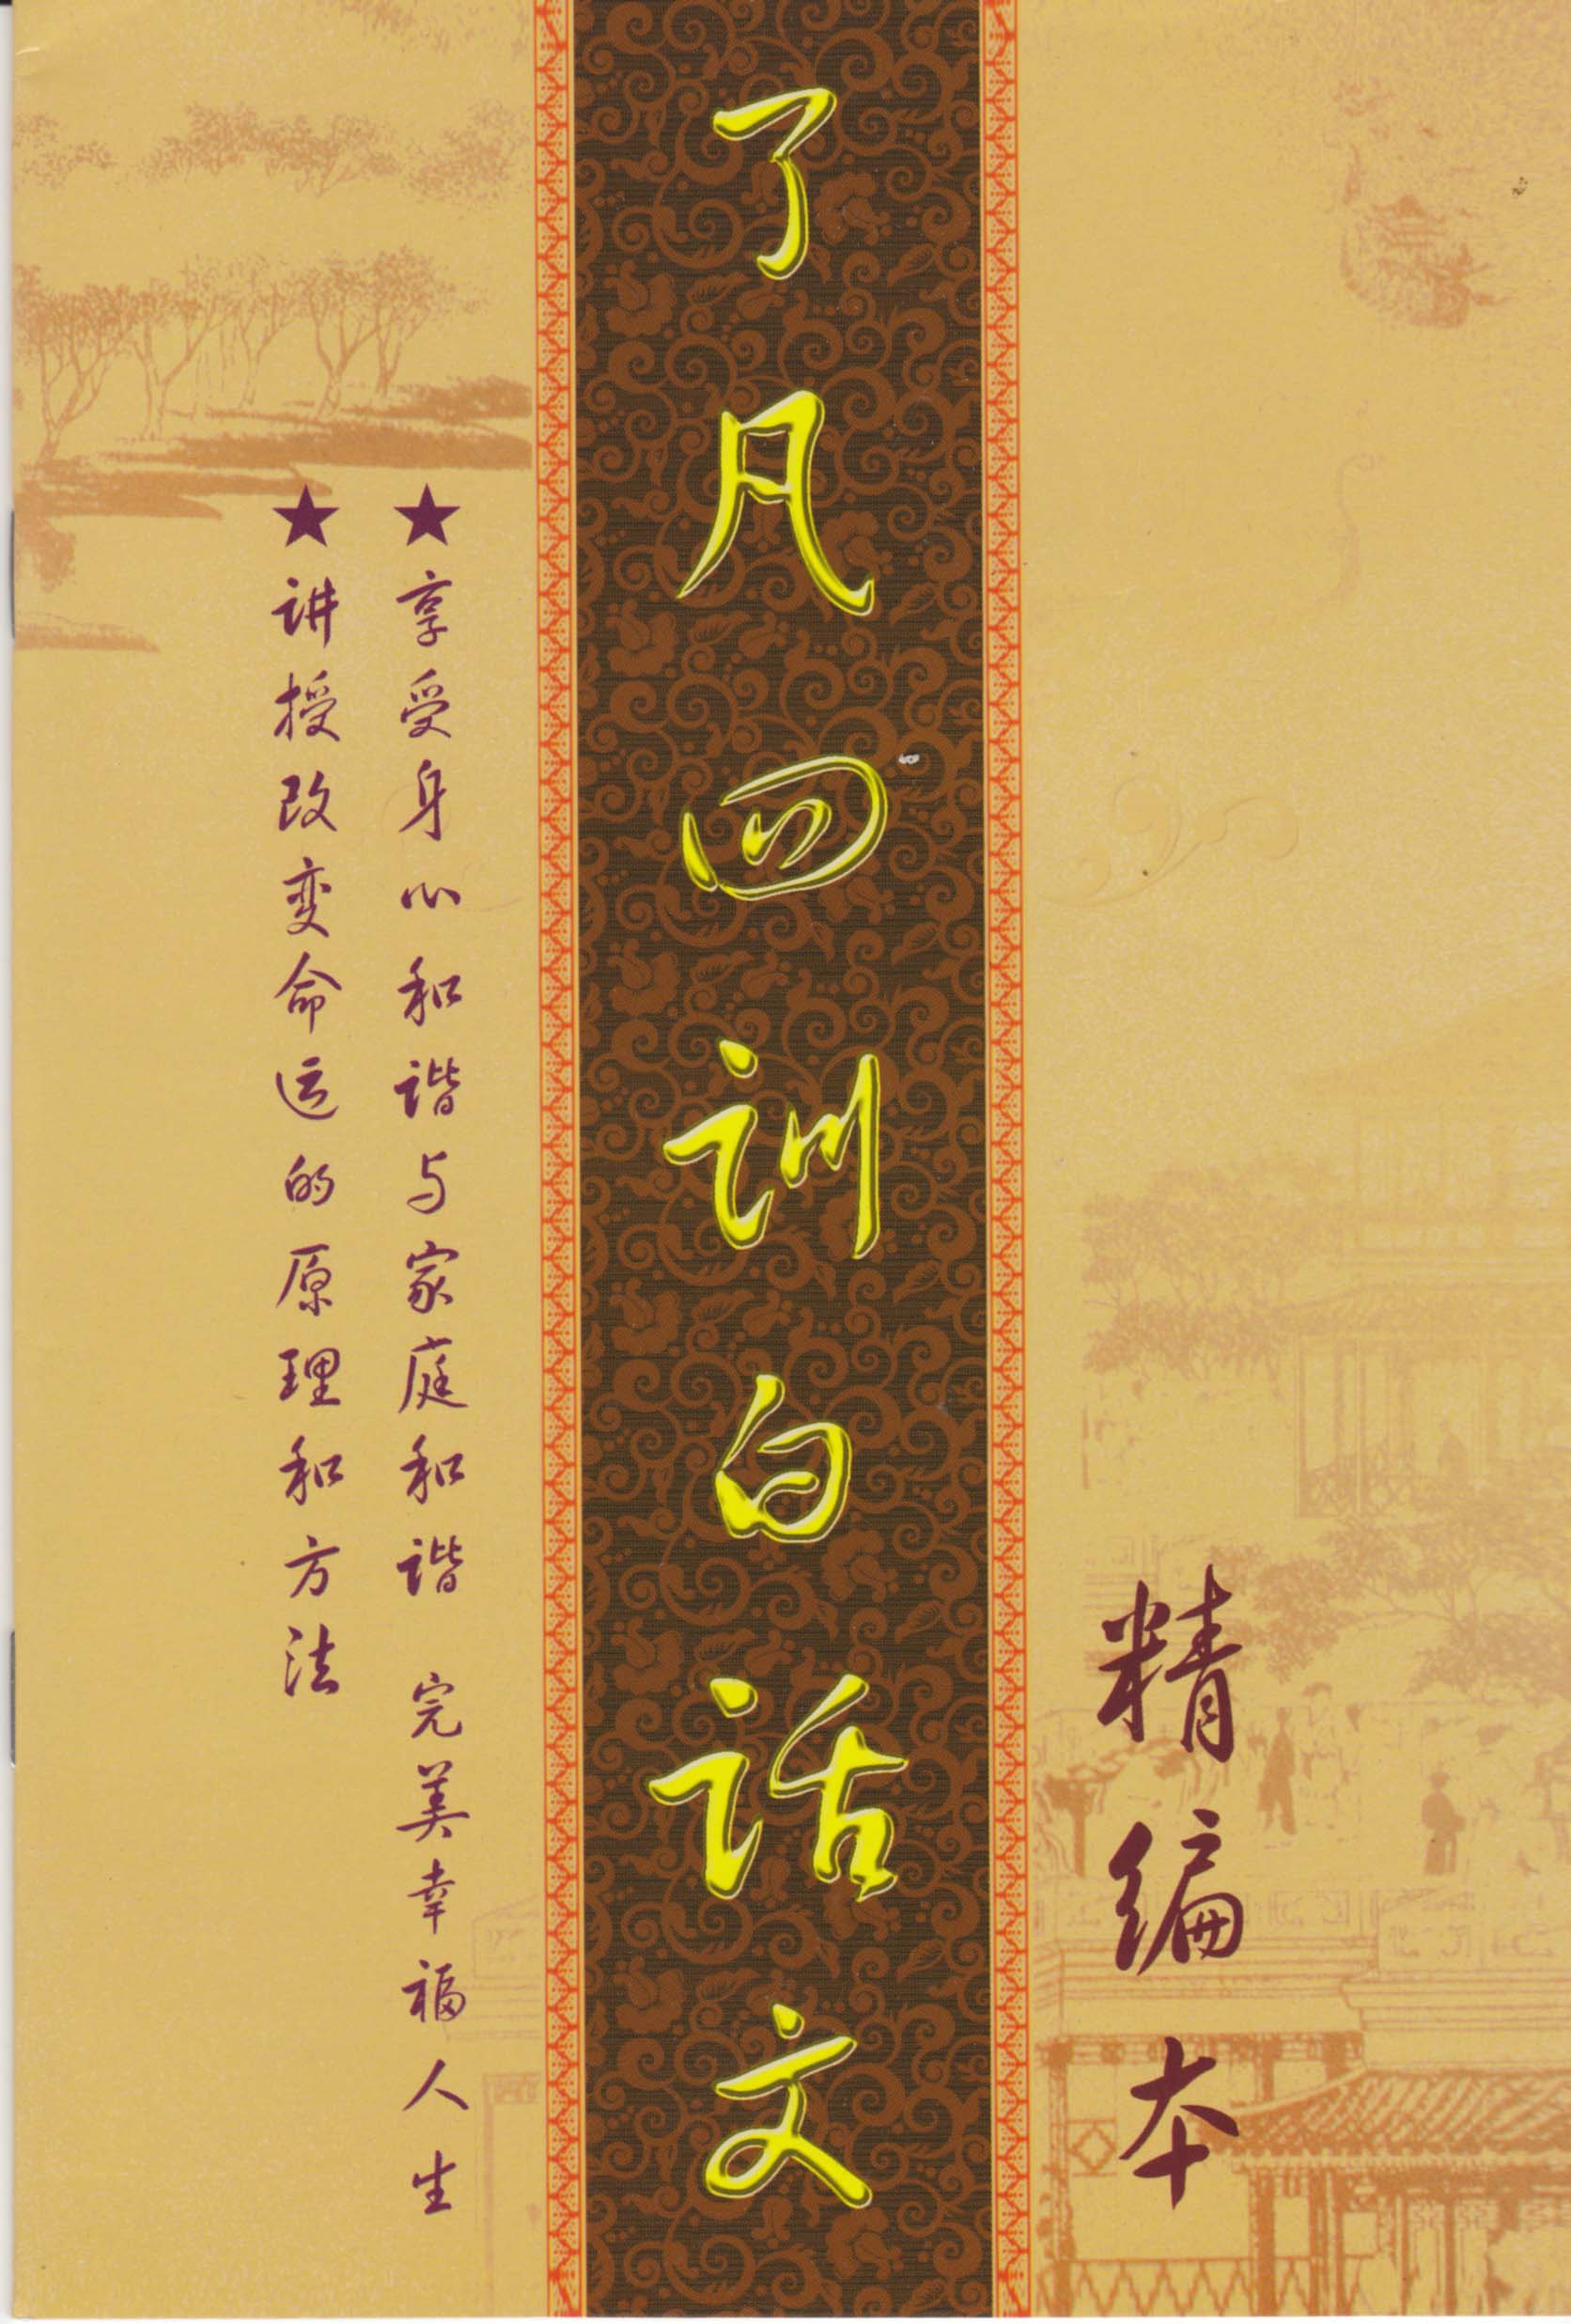 精编本
了凡四训白话文
★享受身心和谐与家庭和谐 完美幸福人生
★讲授改变命运的原理和方法